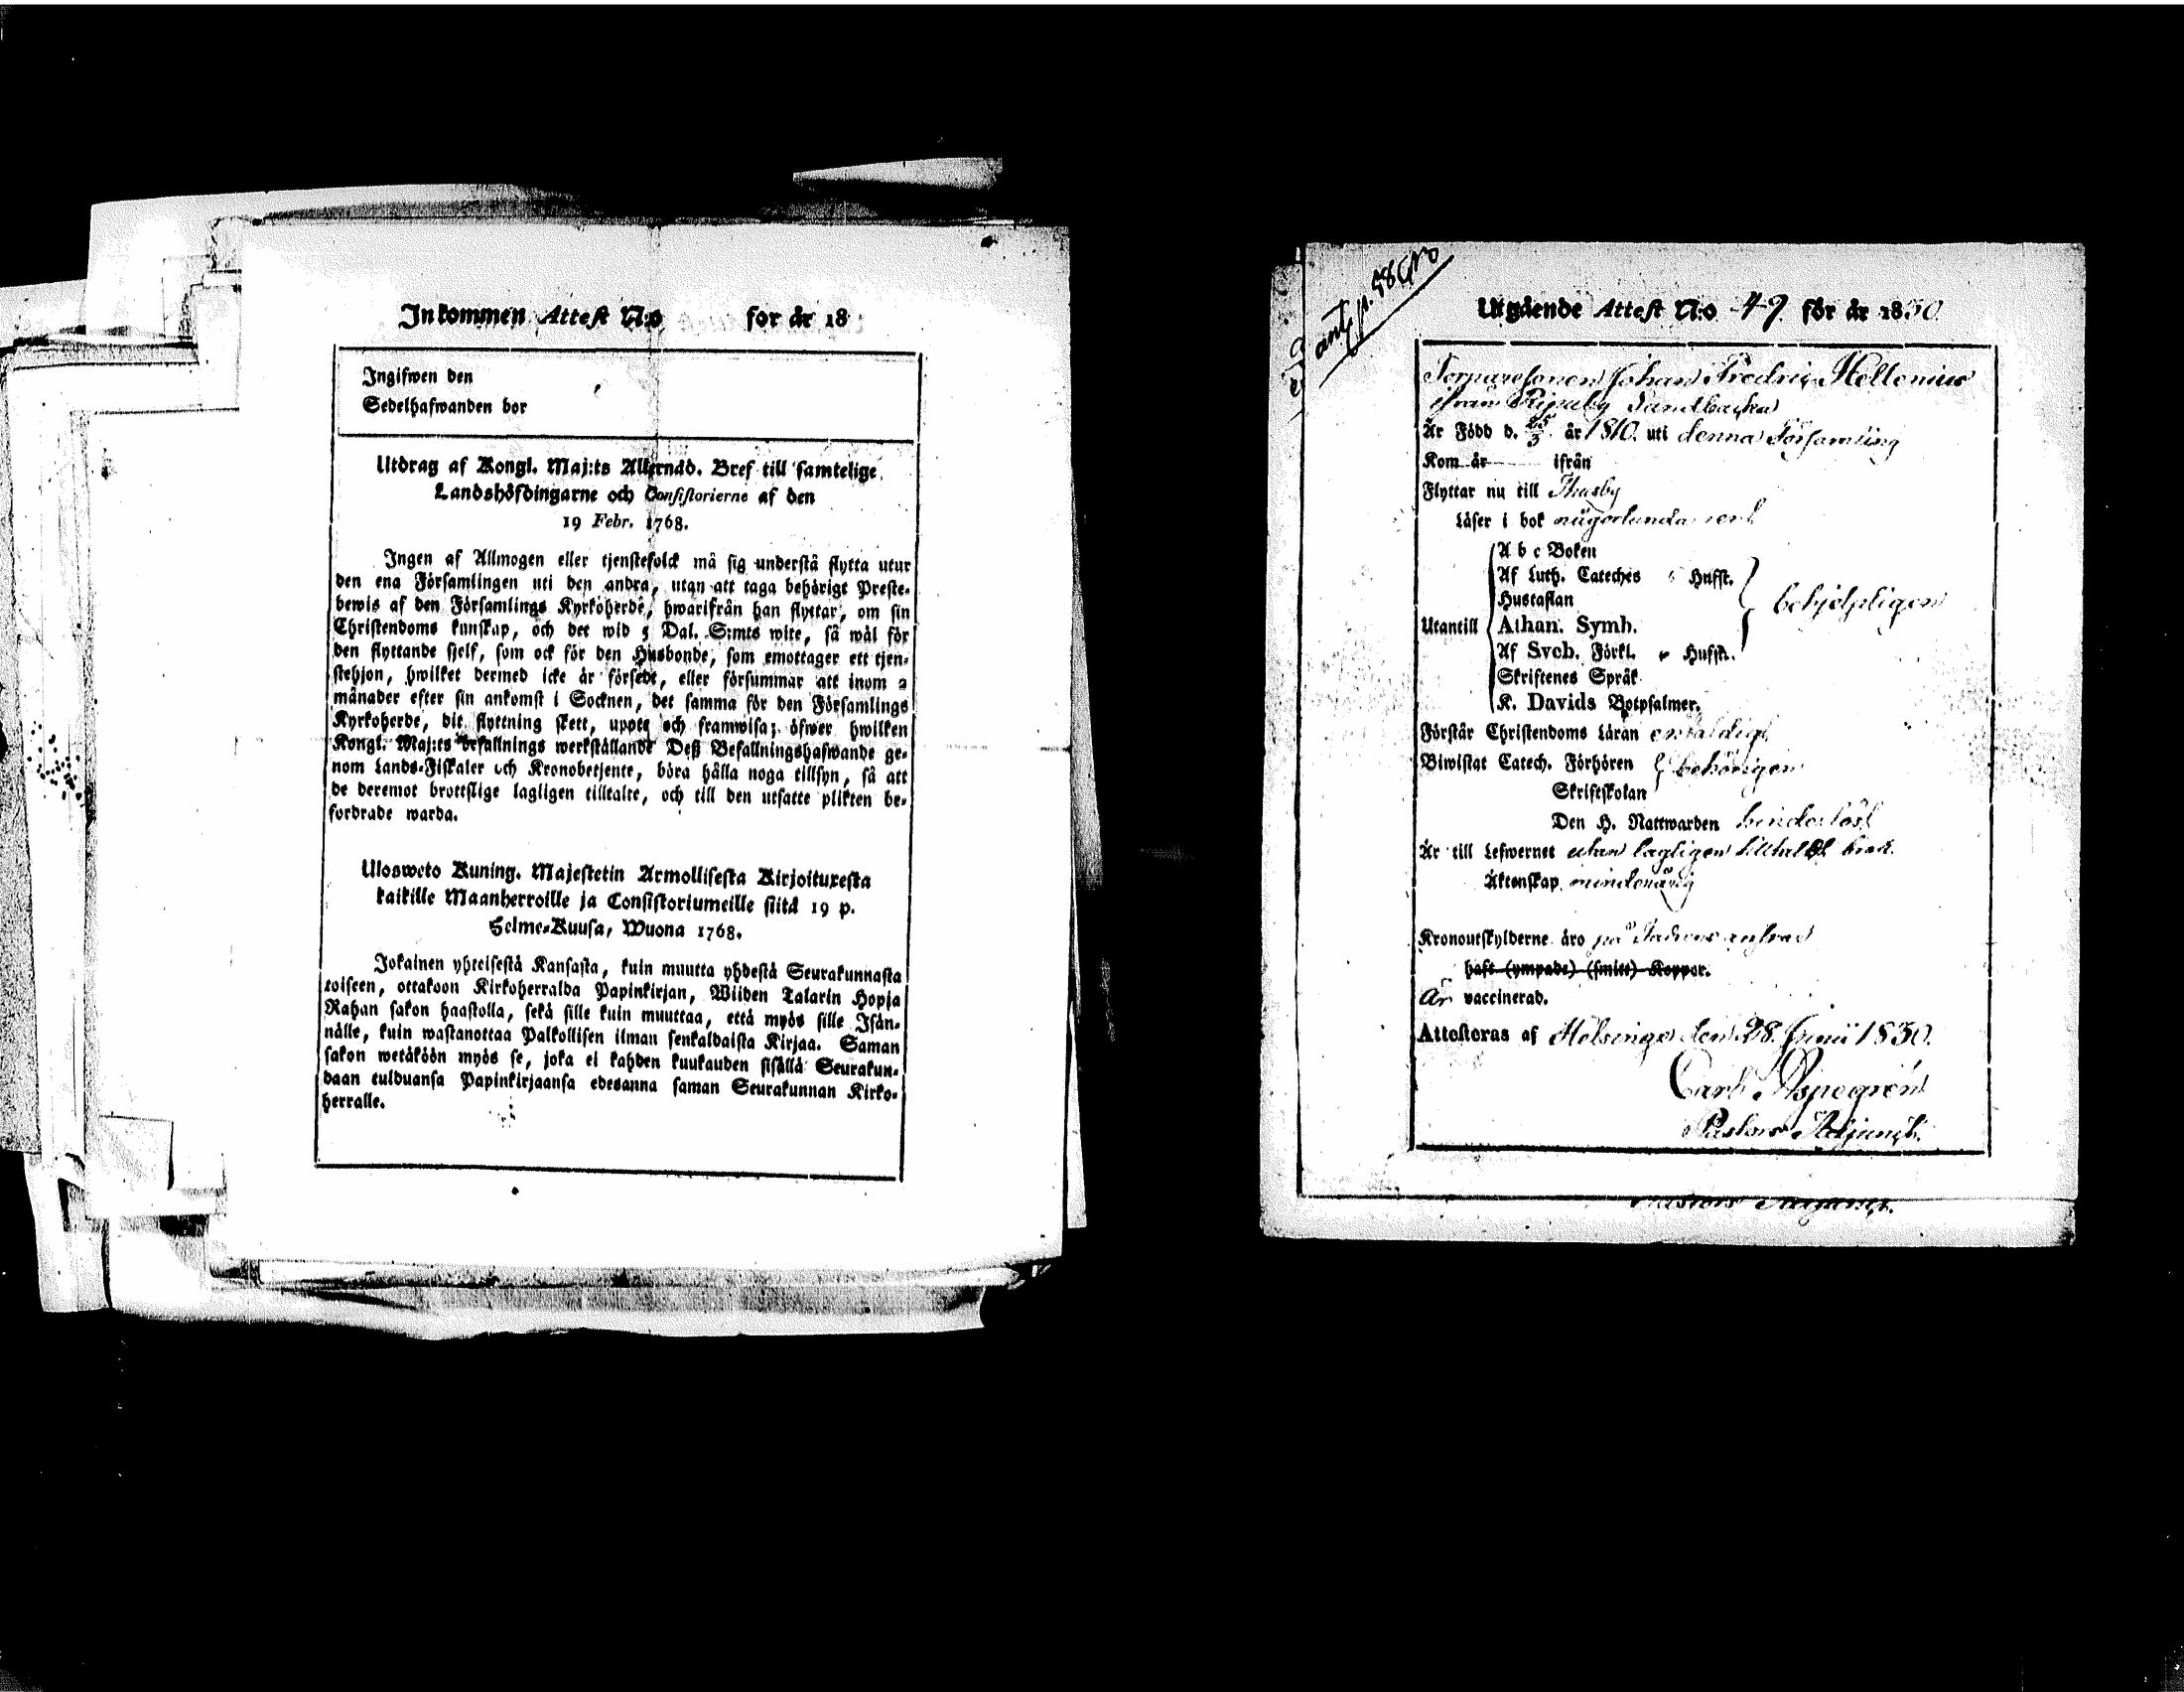 Inkommen Attest N:o for år 18
Ingifwen den
Sedelhafwanden bor
Utdrag af Kongl. Maj:ts Allernåd. Bref till samtelige
Landshöfdingarne och Consistorierne af den
19 Febr. 1768.
Ingen af Allmogen eller tjenstefolck må sig understå flytta utur
den ena Församlingen uti den andra, utan att taga behörigt Preste-
bewis af den Församlings Kyrkoherde, hwarifrån han flyttar, om sin
Christendoms kunskap, och det wid 5 Dal. S:mts wite, så wäl för
den flyttande sjelf, som ock för den Husbonde, som emottager ett tjen-
stehjon, hwilket dermed icke är försedt, eller försummar att inom 2
månader efter sin ankomst i Socknen, det samma för den Församlings
Kyrkoherde, dit flyttning skett, uppte och framwisa; öfwer hwilken
Kongl. Maj:ts befallnings werkställande Deß Befallningshafwande ge-
nom Lands-Fiskaler och Kronobetjente, böra hålla noga tillsyn, så att
de deremot brottslige lagligen tilltalte, och till den utsatte plikten be-
fordrade warda.
Ulosweto Kuning. Majestetin Armollisesta Kirjoituxesta
kaikille Maanherroille ja Consistoriumeille siitä 19 p.
Helme-Kuusa, Wuona 1768.
Jokainen yhteisestä Kansasta, kuin muutta yhdestä Seurakunnasta
toiseen, ottakoon Kirkoherralda Papinkirjan, Wiiden Talarin Hopja
Rahan sakon haastolla, sekä sille kuin muuttaa, että myös sille Isän-
nälle, kuin wastanottaa Palkollisen ilman senkaldaista Kirjaa. Saman
sakon wetäköön myös se, joka ei kahden kuukauden sisällä Seurakun-
daan tulduansa Papinkirjaansa edesanna saman Seurakunnan Kirko-
herralle.
ant. p. 58
Utgående Attest N:o 49 för år 1830.
Torparesonen Johan Fredric Hellenius
ifrån Sandbacka
Är Född d. 25/3 år 1810. uti denna Församling
Kom år ifrån
Flyttar nu till Thusby
Läser i bok någorlunda rent
A b c Boken
Af Luth. Cateches Hufst.
Hustaflan
Utantill Athan. Symb. behjelpligen
Af Sveb. Förkl. Hufst.
Skriftenes Språk
K. Davids Botpsalmer.
Förstår Christendoms Läran enfaldigt
Biwistat Catech. Förhören behörigen
Skriftskolan
Den H. Nattwarden hinderlöst
Är till Lefwernet utan lagligen brott.
Äktenskap minderårig
Kronoutskylderne äro på
haft (ympade) (smitt) Koppor.
Är vaccinerad.
Attesteras af Helsinge den 28. Junii 1830.
Carl Aspegrén
Pastors Adjunct.
Pastors Adjunct.